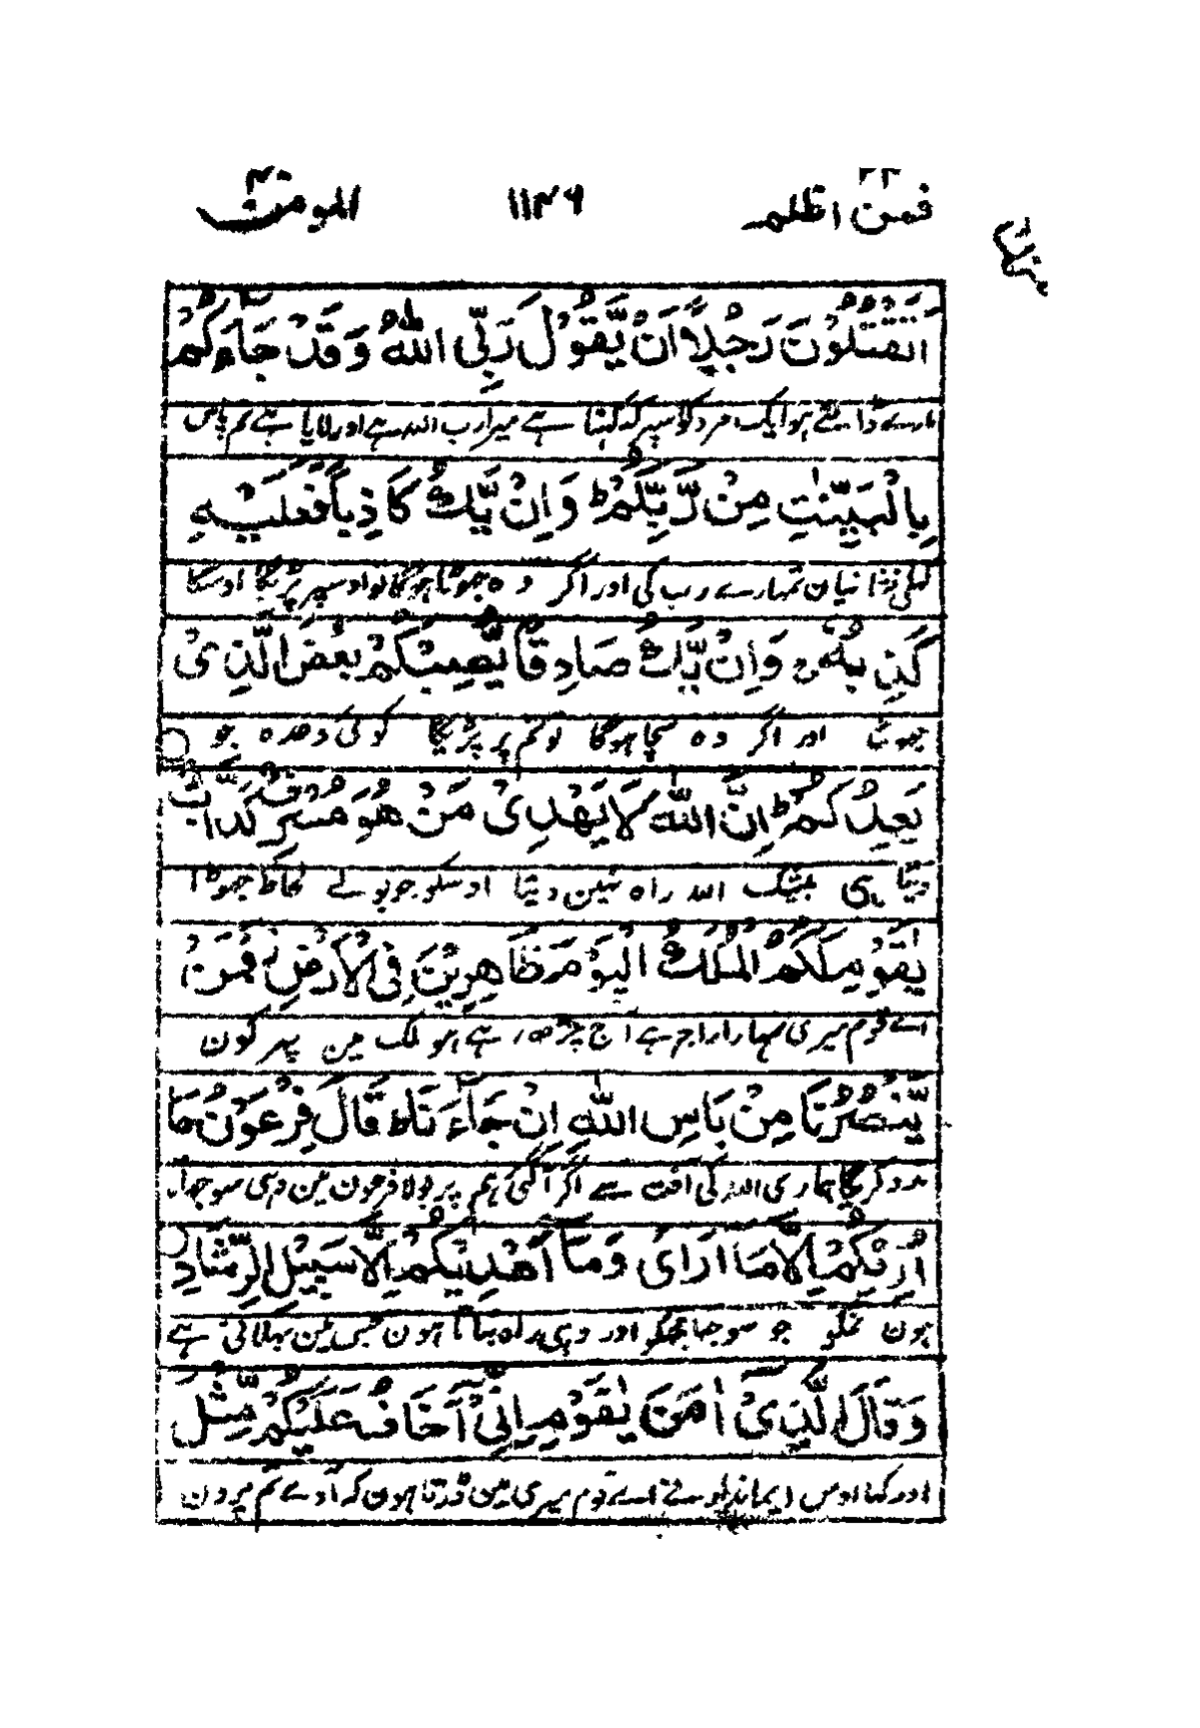 فمن اظلم ۲۴ ۱۱۴۶ المومن ۴۰
اَتَقْتُلُوْنَ رَجُلًا اَنْ يَّقُوْلَ رَبِّیَ اللّٰهُ وَقَدْ جَآءَكُمْ
مارے ڈالتے ہو ایک مرد کو اسپر کہ کہتا ہے میرا رب اللہ ہے اور لایا ہے تم پاس
بِالْبَيِّنٰتِ مِنْ رَّبِّكُمْ ط وَاِنْ يَّكُ كَاذِبًا فَعَلَيْهِ
کھلی نشانیان تمہارے رب کی اور اگر وہ جھوٹا ہوگا تو اوسپر پڑیگا اوسکا
كَذِبُهٗ ج وَاِنْ يَّكُ صَادِقًا يُّصِبْكُمْ بَعْضُ الَّذِیْ
جھوٹ اور اگر وہ سچا ہوگا تو تم پر پڑیگا کوئی وعدہ جو
يَعِدُكُمْ ط اِنَّ اللّٰهَ لَا يَهْدِیْ مَنْ هُوَ مُسْرِفٌ كَذَّابٌ
دیتا ہی بیشک اللہ راہ نہین دیتا اوسکو جو ہو بے لحاظ جھوٹا
يٰقَوْمِ لَكُمُ الْمُلْكُ الْيَوْمَ ظَاهِرِيْنَ فِی الْاَرْضِ ز فَمَنْ
اے قوم میری تمہارا راج ہے آج چڑھ رہے ہو ملک مین پھر کون
يَّنْصُرُنَا مِنْ بَاْسِ اللّٰهِ اِنْ جَآءَنَا ط قَالَ فِرْعَوْنُ مَا
مدد کریگا ہماری اللہ کی آفت سے اگر آگئی ہم پر بولا فرعون مین وہی سوجھاتا
اُرِيْكُمْ اِلَّا مَا اَرٰی وَمَا اَهْدِيْكُمْ اِلَّا سَبِيْلَ الرَّشَادِ
ہون تمکو جو سوجھا مجھکو اور وہی راہ بتاتا ہون جس مین بھلائی ہے
وَقَالَ الَّذِیْ اٰمَنَ يٰقَوْمِ اِنِّیْ اَخَافُ عَلَيْكُمْ مِّثْلَ
اور کہا اوس ایماندار نے اے قوم میری مین ڈرتا ہون کہ آوے تم پر دن